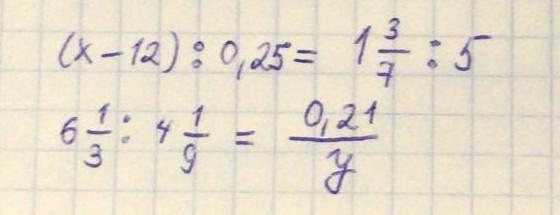 (x-12) : 0,25 = 1 3/7 : 5
6 1/3 : 4 1/9 = 0,21/y